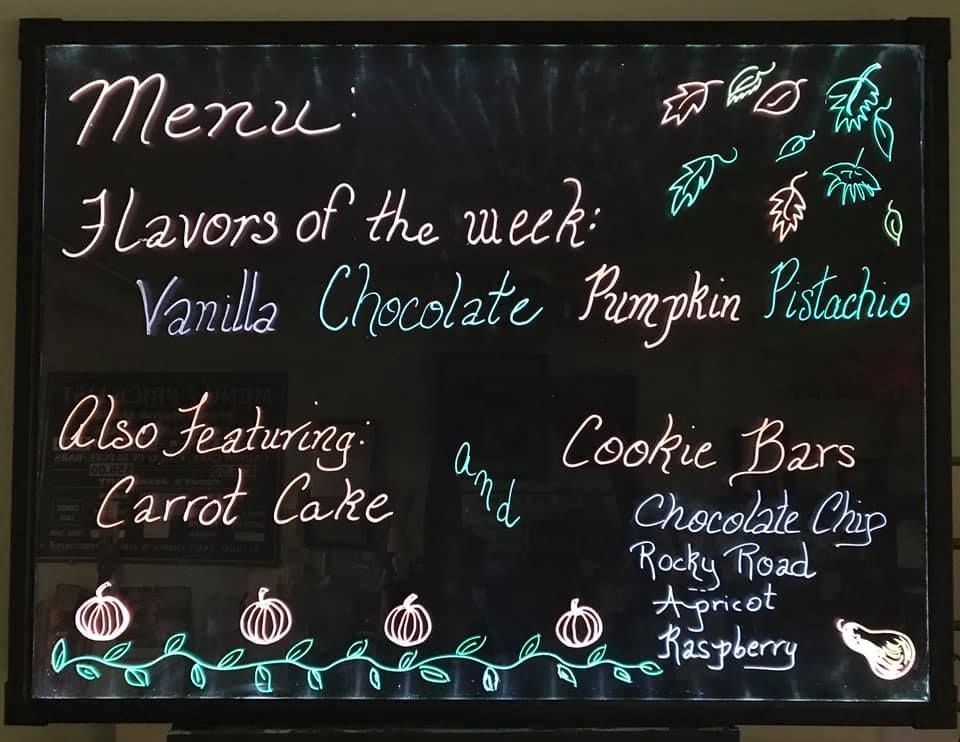 Menu:
Flavors of the week:
Vanilla Chocolate Pumpkin Pistachio
Also Featuring:
Carrot Cake
and
Cookie Bars
Chocolate Chip
Rocky Road
Apricot
Raspberry